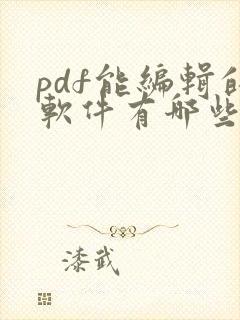 pdf能編輯的
軟件有哪些
漆武